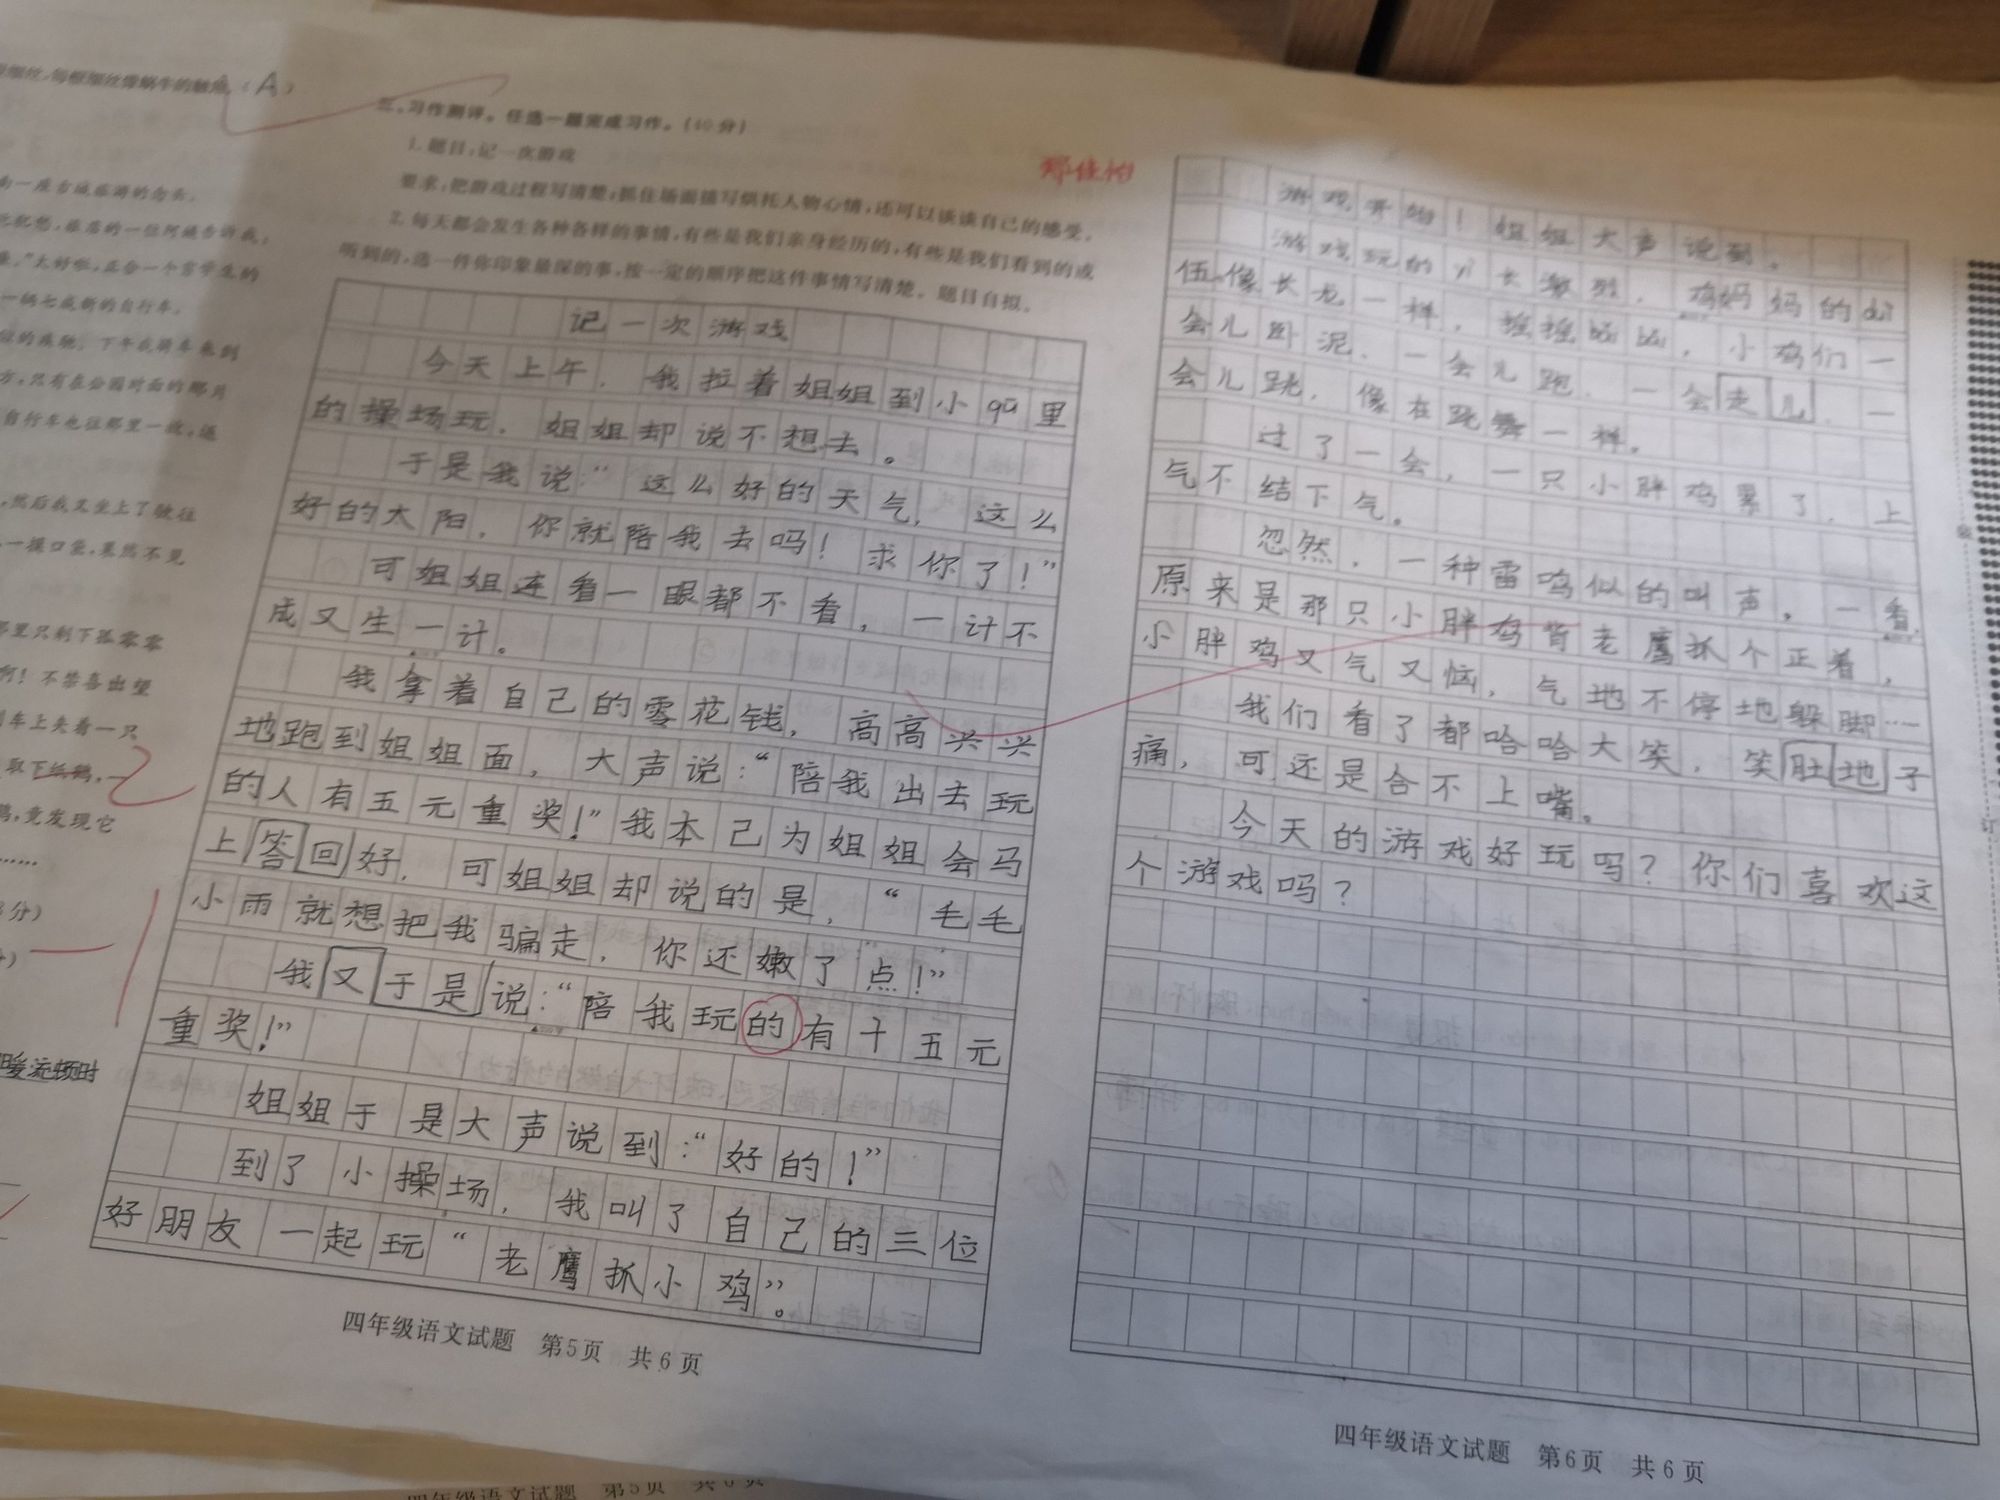 （A）
向一座古城旅游的向东。
一辆七成新的自行车。
方，只有在公园对面的那片
自行车也往那里一放，逼
，然后我又坐上了驶往
一摸口袋，果然不见
那里只剩下孤零零
啊！不禁喜出望
车上夹着一只
取下纸鹤，一
鹤，竟发现它
……
三、习作测评。任选一题完成习作。（40分）
1.题目：记一次游戏
要求：把游戏过程写清楚；抓住场面描写烘托人物心情，还可以谈谈自己的感受。
2.每天都会发生各种各样的事情，有些是我们亲身经历的，有些是我们看到的或
听到的，选一件你印象最深的事，按一定的顺序把这件事情写清楚。题目自拟。
记一次游戏
今天上午，我拉着姐姐到小qū里
的操场玩，姐姐却说不想去。
于是我说：“这么好的天气，这么
好的太阳，你就陪我去吗！求你了！”
可姐姐连看一眼都不看，一计不
成又生一计。
我拿着自己的零花钱，高高兴兴
地跑到姐姐面，大声说：“陪我出去玩
的人有五元重奖！”我本己为姐姐会马
上答回好，可姐姐却说的是，“毛毛
小雨就想把我骗走，你还嫩了点！”
我又于是说：“陪我玩的有十五元
重奖！”
姐姐于是大声说到：“好的！”
到了小操场，我叫了自己的三位
好朋友一起玩“老鹰抓小鸡”。
四年级语文试题 第5页 共6页
郑佳怡
游戏开始！姐姐大声说到。
游戏玩的yì长激烈，鸡妈妈的duì
伍像长龙一样，摇摇bǎi bǎi，小鸡们一
会儿卧泥，一会儿跑，一会走儿，一
会儿跳，像在跳舞一样。
过了一会，一只小胖鸡累了，上
气不结下气。
忽然，一种雷鸣似的叫声，一看，
原来是那只小胖鸡背老鹰抓个正着，
小胖鸡又气又恼，气地不停地躲脚……
我们看了都哈哈大笑，笑肚地子
痛，可还是合不上嘴。
今天的游戏好玩吗？你们喜欢这
个游戏吗？
四年级语文试题 第6页 共6页
四年级语文试题 第5页 共6页